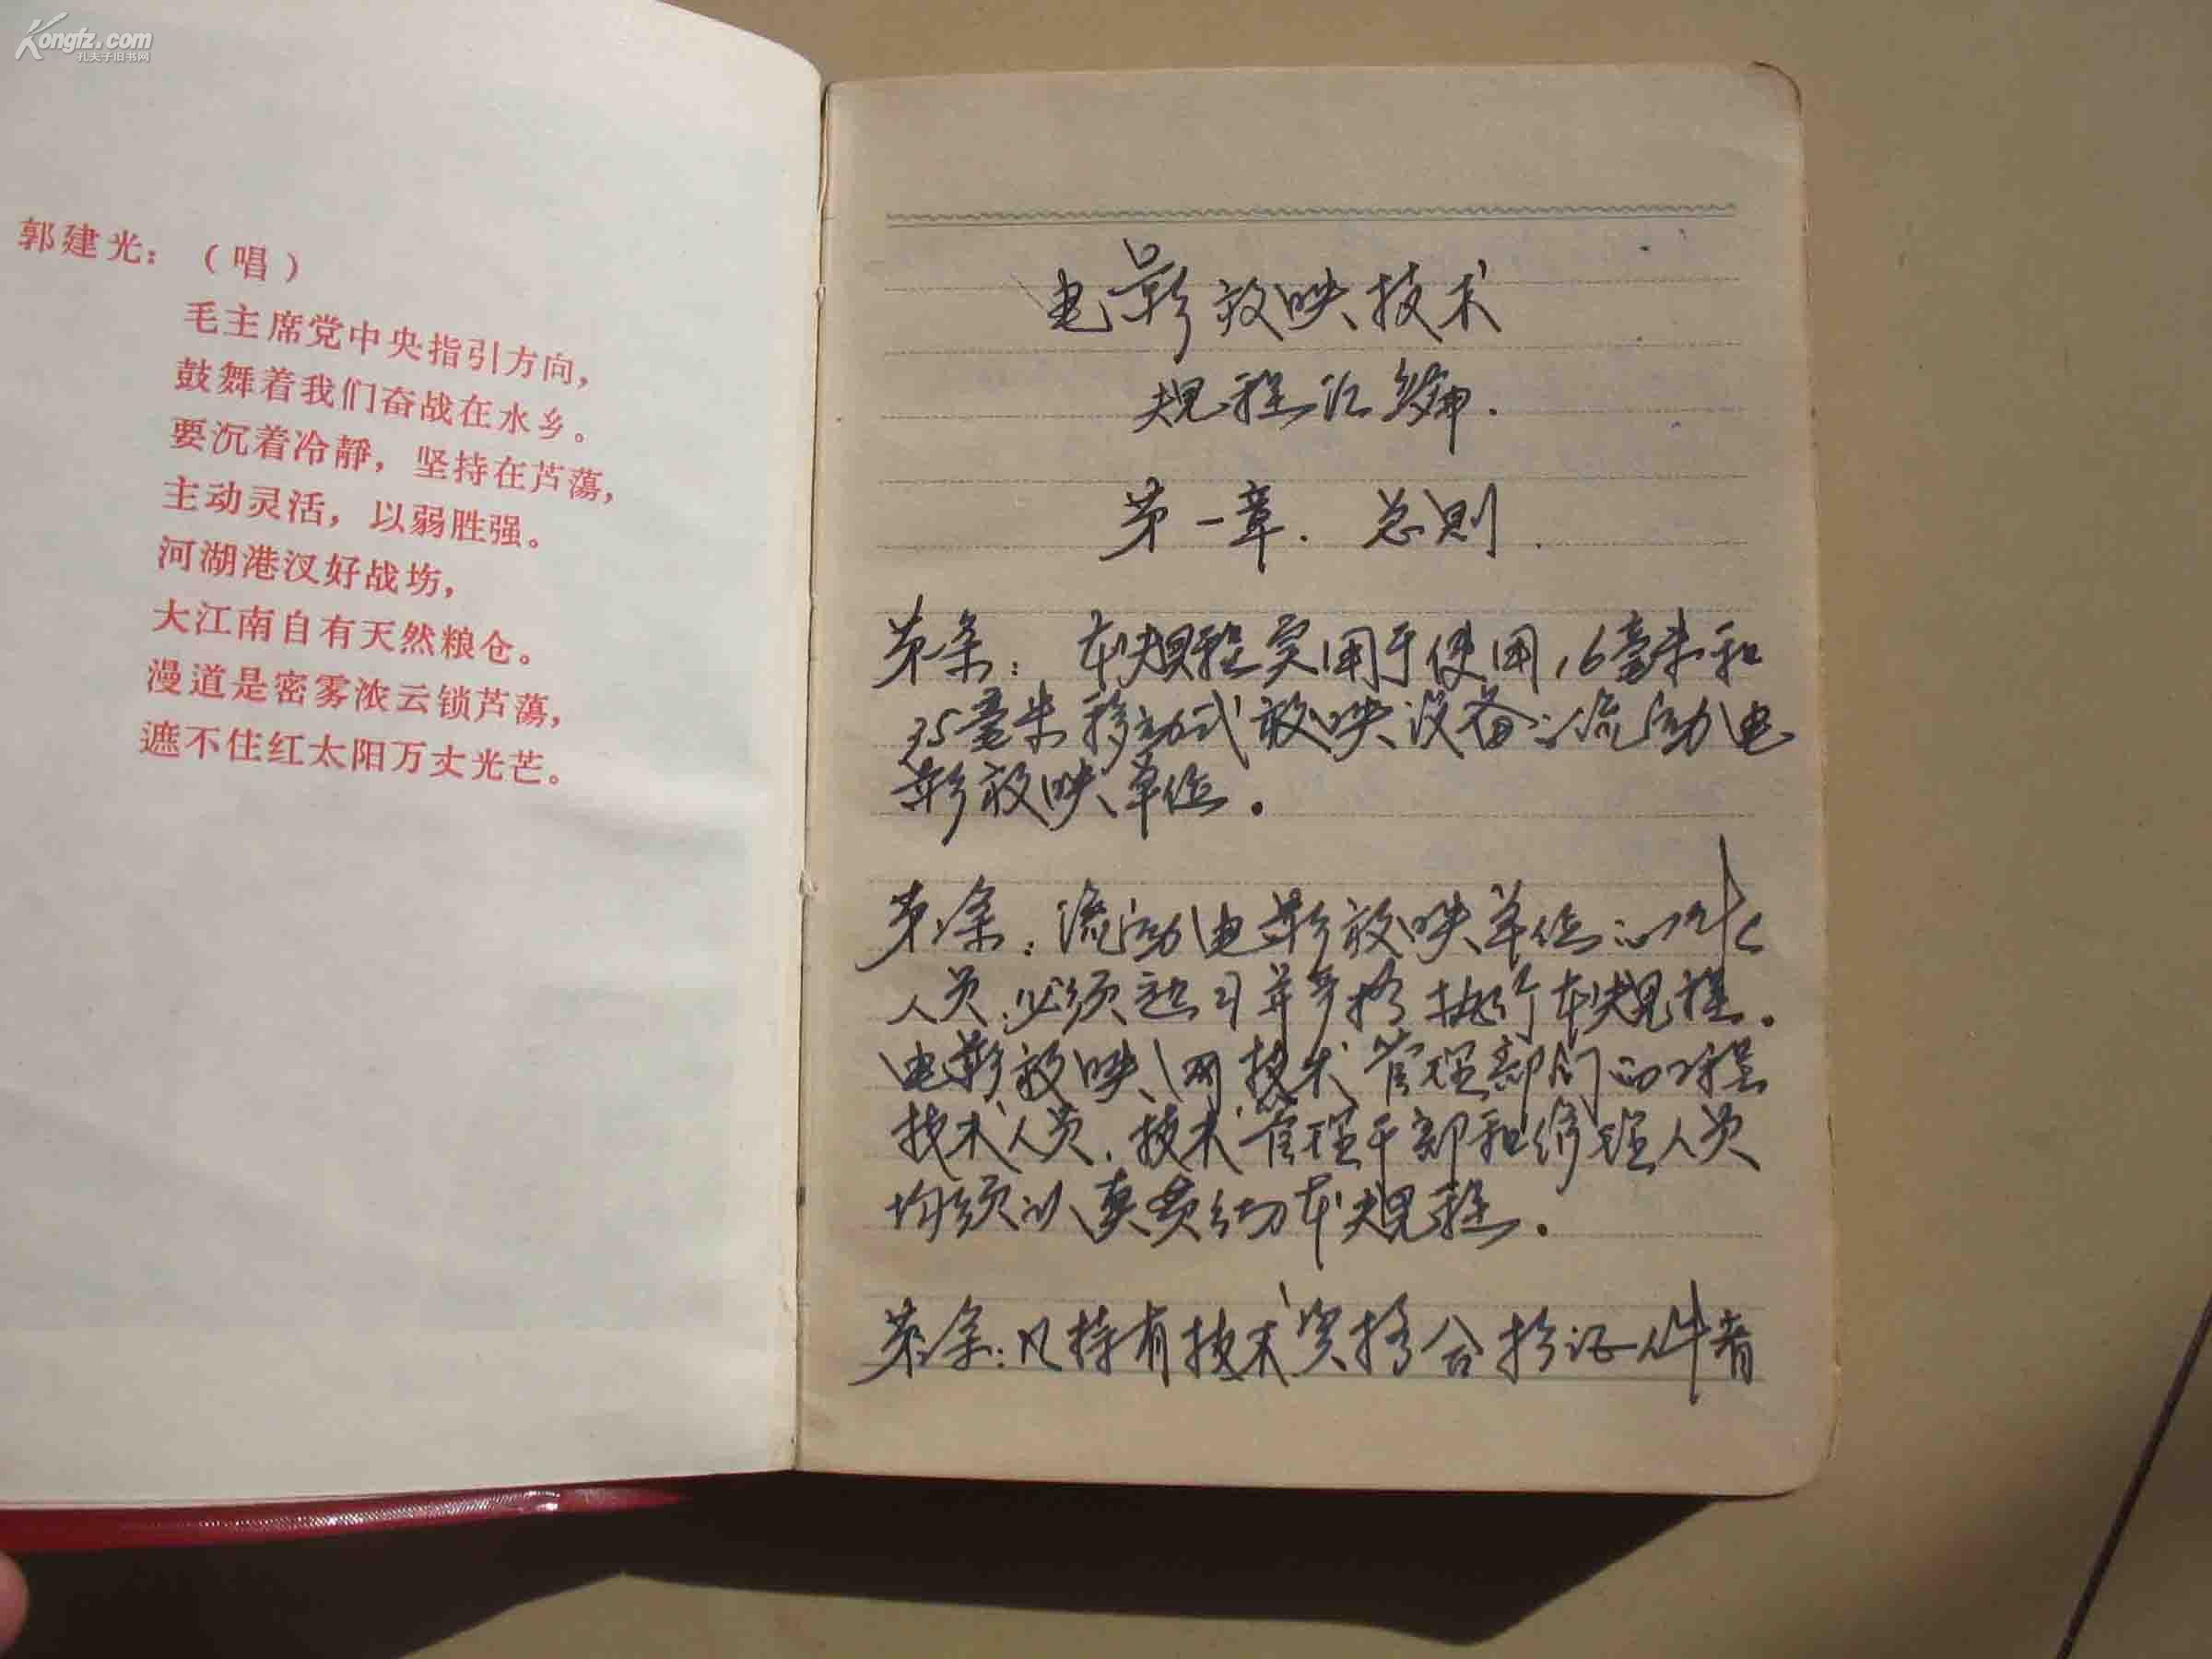 Kongfz.com
孔夫子旧书网
郭建光：（唱）
毛主席党中央指引方向，
鼓舞着我们奋战在水乡。
要沉着冷静，坚持在芦蕩，
主动灵活，以弱胜强。
河湖港汊好战坊，
大江南自有天然粮仓。
漫道是密雾浓云锁芦蕩，
遮不住红太阳万丈光芒。
电影放映技术
规程汇编.
第一章. 总则.
第一条：本规程实用于使用16毫米和
35毫米移动式放映设备的流动电
影放映单位。
第二条：流动电影放映单位的
人员，必须 习并严格执行本规程。
电影放映网技术管理部门的工程
技术人员，技术管理干部和修理人员
均须认真贯彻本规程。
第三条：凡持有技术资格合格证件者